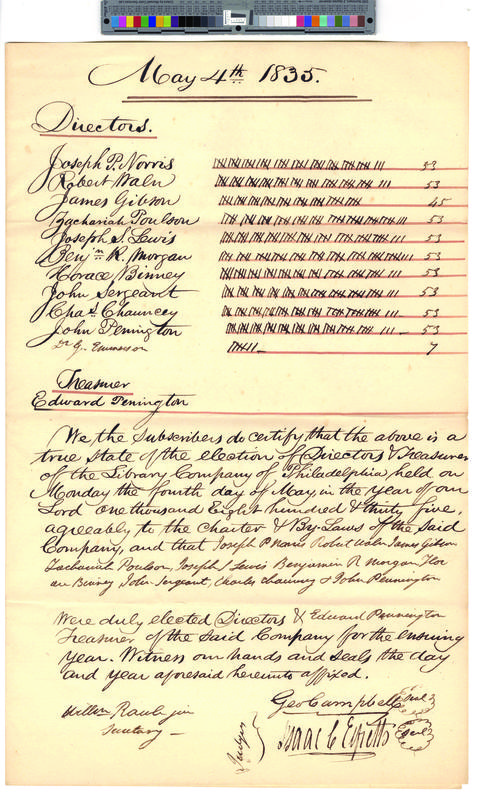 May 4th 1835.
Directors.
Joseph P. Norris 53
Robert Waln 53
James Gibson 45
Zachariah Poulson 53
Joseph S. Lewis 53
Benjn. R. Morgan 53
Horace Binney 53
John Sergeant 53
Chas. Chauncey 53
John Penington 53
Dr G. Emmerson 7
Treasurer
Edward Penington
We the Subscribers do certify that the above is a
true state of the election of Directors & Treasurer
of the Library Company of Philadelphia held on
Monday the fourth day of May, in the year of our
Lord One thousand Eight hundred & thirty five,
agreeably to the Charter & By-Laws of the Said
Company, and that Joseph P Norris Robert Waln James Gibson
Zachariah Poulson, Joseph S Lewis Benjamin R Morgan Hor
ace Binney John Sergeant, Charles Chauncy & John Pennington
Were duly elected Directors & Edward Pennington
Treasurer of the Said Company for the ensuing
year. Witness our hands and seals the day
and year aforesaid hereunto affixed.
Geo Campbell seal
William Rawle jun
Secretary
Judges
Isaac C seal